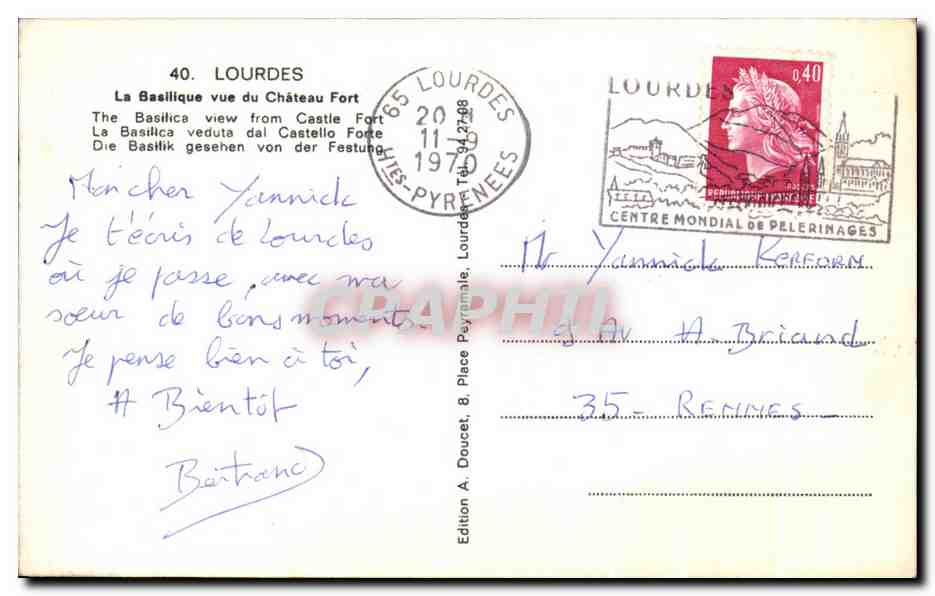 40. LOURDES
La Basilique vue du Château Fort
The Basilica view from Castle Fort
La Basilica veduta dal Castello Forte
Die Basilik gesehen von der Festung
65 LOURDES
20 H
11-9
1970
HTES-PYRENEES
LOURDES
0,40
REPUBLIQUE FRANCAISE
CENTRE MONDIAL DE PELERINAGES
Mon cher Yannick
Je t'écris de Lourdes
où je passe, avec ma
sœur de bons moments.
Je pense bien à toi,
A Bientôt
Bertrand
Edition A. Doucet, 8, Place Peyramale, Lourdes - Tél. 94.27.88
Mr Yannick KERFORN
9 Av A. Briand
35 - RENNES -
CPAPHIL